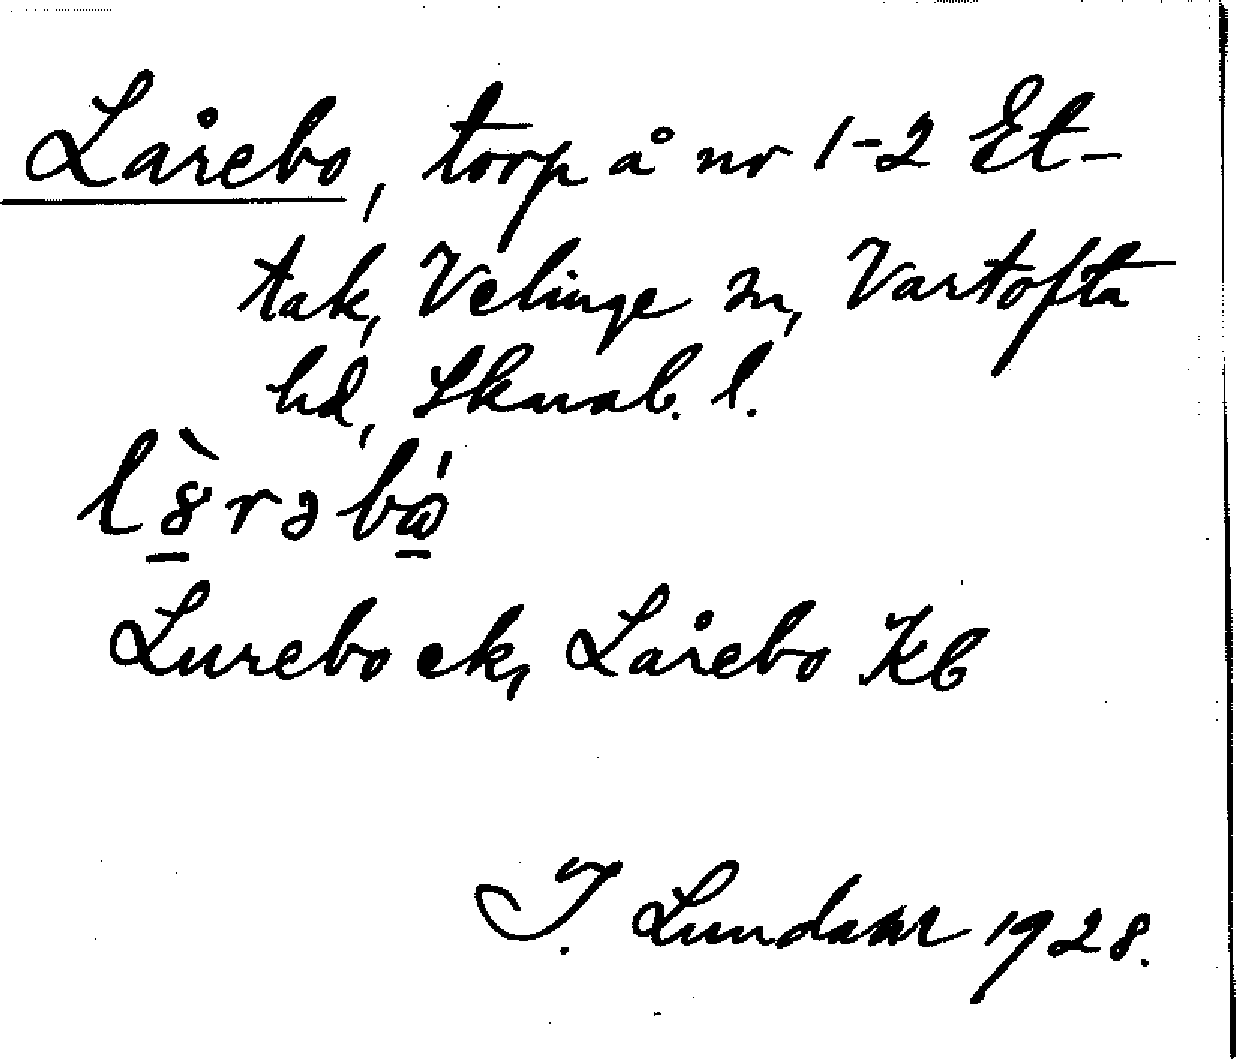 Lårebo, torp å nr 1-2 Et-
tak, Velinge sn, Vartofta
hd, Skarab. l.
l8̀rəbω´
Lurebo ek, Lårebo Kb
J. Lundahl 1928.